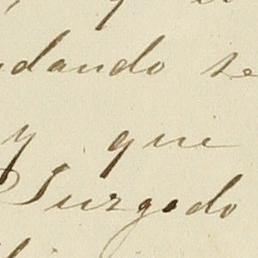 dando se
y que
Juzgado